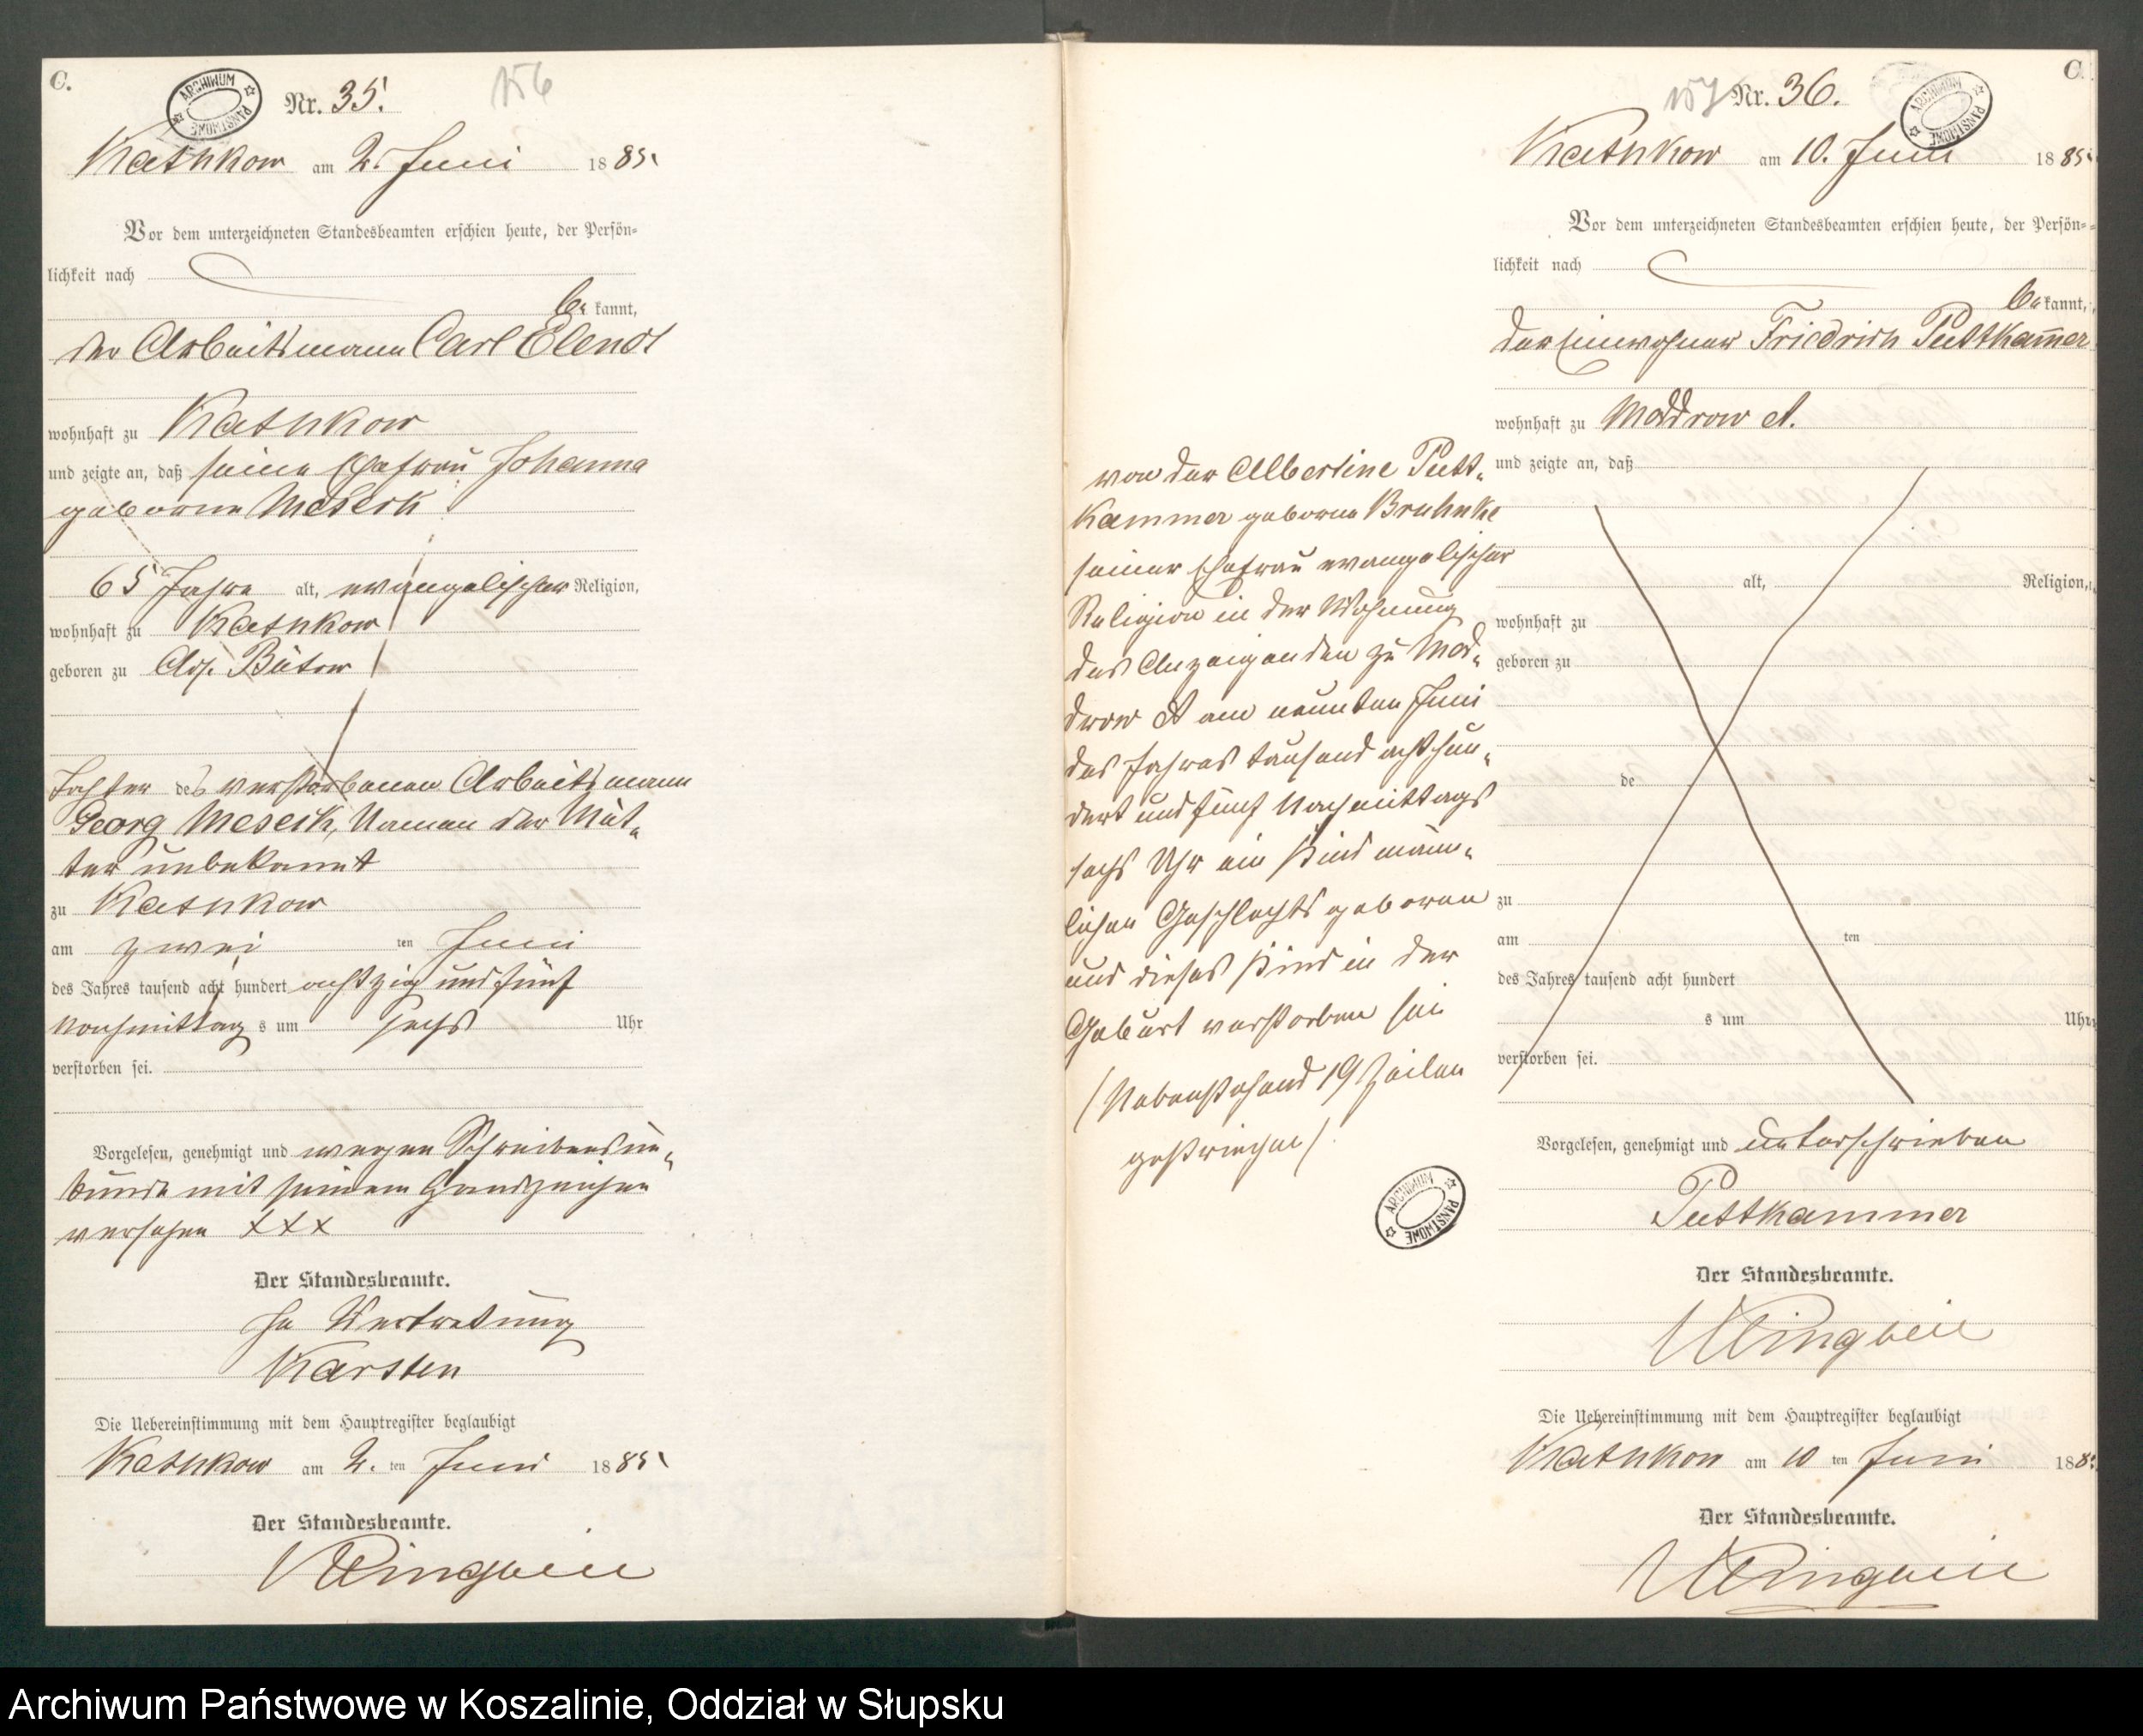 C.
ARCHIWUM PAŃSTWOWE
Nr. 35.
156
Kathkow am 2. Juni 1885.
Vor dem unterzeichneten Standesbeamten erschien heute, der Persön-
lichkeit nach
be kannt,
der Arbeitsmann Carl Elendt
wohnhaft zu Kathkow
und zeigte an, daß seine Ehefrau Johanna
geborne Meseck
65 Jahre alt, evangelischer Religion,
wohnhaft zu Kathkow
geboren zu Adl. Bütow
Tochter des verstorbenen Arbeitsmann
Georg Meseck, Namen der Mut-
ter unbekannt
zu Kathkow
am zwei ten Juni
des Jahres tausend acht hundert achtzig und fünf
Nachmittag s um sechs Uhr
verstorben sei.
Vorgelesen, genehmigt und wegen Schreibensun-
kunde mit seinem Handzeichen
versehen XXX
Der Standesbeamte.
In Vertretung
Karsten
Die Uebereinstimmung mit dem Hauptregister beglaubigt
Kathkow am 2. ten Juni 1885.
Der Standesbeamte.
C.
ARCHIWUM PAŃSTWOWE
157
Nr. 36.
Kathkow am 10. Juni 1885.
Vor dem unterzeichneten Standesbeamten erschien heute, der Persön-
lichkeit nach
be kannt,
der Einwohner Friedrich Puttkam̅er
wohnhaft zu Moddrow A.
und zeigte an, daß
alt, Religion,
wohnhaft zu
geboren zu
de
zu
am ten
des Jahres tausend acht hundert
s um Uhr
verstorben sei.
von der Albertine Putt-
kammer geborne Bruhnke
seiner Ehefrau evangelischer
Religion in der Wohnung
des Anzeigenden zu Mod-
drow A am neunten Juni
des Jahres tausend achthun-
dert und fünf Nachmittags
sechs Uhr ein Kind männ-
lichen Geschlechts geboren
und dieses Kind in der
Geburt verstorben sei
(Nebenstehend 19 Zeilen
gestrichen).
ARCHIWUM PAŃSTWOWE
Vorgelesen, genehmigt und unterschrieben
Puttkammer
Der Standesbeamte.
Die Uebereinstimmung mit dem Hauptregister beglaubigt
Kathkow am 10 ten Juni 188
Der Standesbeamte.
Archiwum Państwowe w Koszalinie, Oddział w Słupsku